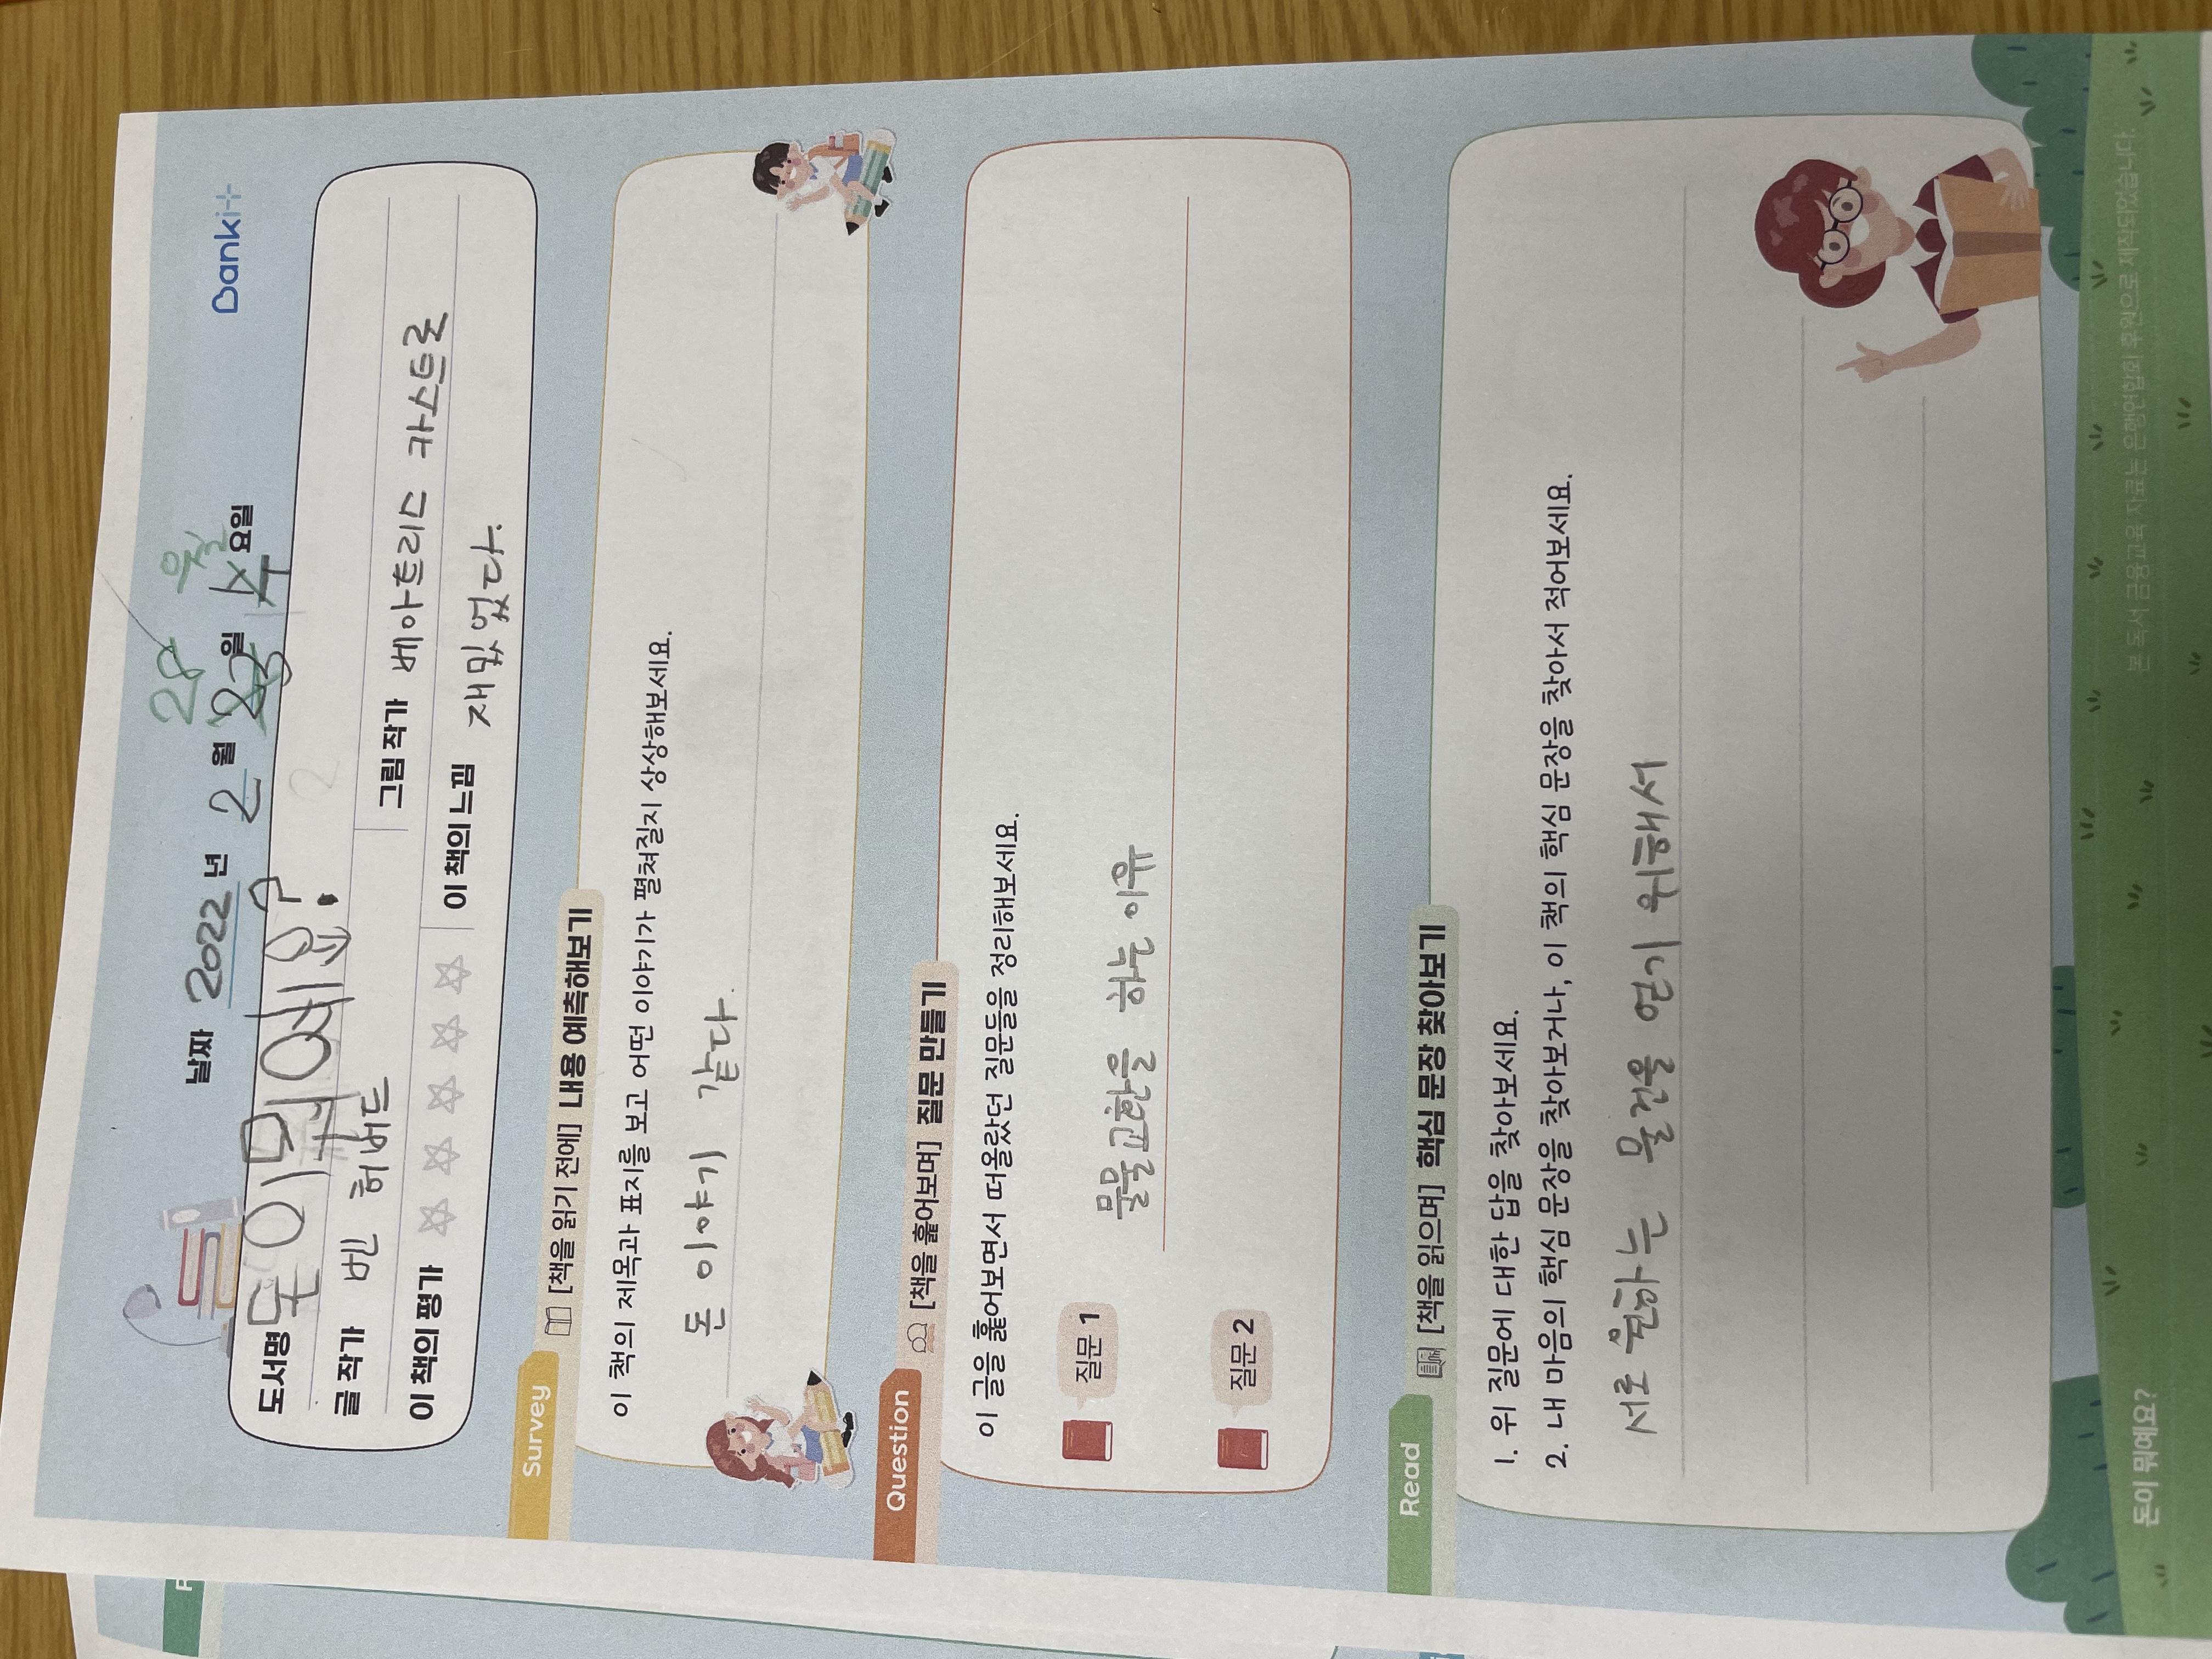 Banki
28 월
날짜 2022 년 2 월 23 일 수 요일
도서명 돈이 뭐예요?
글 작가 벤 허버드 그림 작가 베아트리스 카스트로
이 책의 평가 ☆☆☆☆☆ 이 책의 느낌 재밌었다.
Survey [책을 읽기 전에] 내용 예측해보기
이 책의 제목과 표지를 보고 어떤 이야기가 펼쳐질지 상상해보세요.
돈 이야기 같다.
Question [책을 훑어보며] 질문 만들기
이 글을 훑어보면서 떠올랐던 질문들을 정리해보세요.
질문 1 물물교환을 하는 이유
질문 2
Read [책을 읽으며] 핵심 문장 찾아보기
1. 위 질문에 대한 답을 찾아보세요.
2. 내 마음의 핵심 문장을 찾아보거나, 이 책의 핵심 문장을 찾아서 적어보세요.
서로 원하는 물건을 얻기 위해서
돈이 뭐예요? 본 독서 금융교육 자료는 은행연합회 후원으로 제작되었습니다.